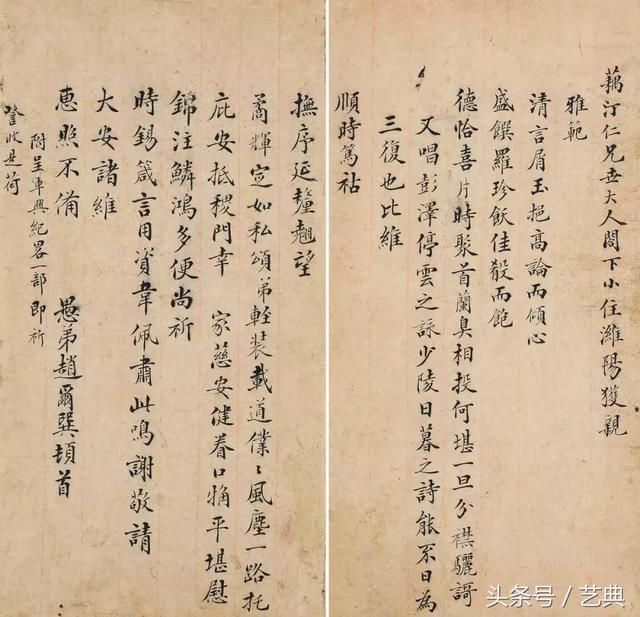 藕汀仁兄世大人閣下小住濰陽獲親
雅範
清言屑玉挹高論而傾心
盛饌羅珍飫佳殽而飽
德怡喜片時聚首蘭臭相投何堪一旦分襟驪謌
又唱彭澤停雲之詠少陵日暮之詩能不日為
三復也比維
順時篤祜
撫序延釐翹望
矞輝定如私頌弟輕裝載道僕〻風塵一路托
庇安抵稷門幸 家慈安健眷口平堪慰
錦注鱗鴻多便尚祈
時錫箴言用資韋佩肅此鳴謝敬請
大安諸維
惠照不備 愚弟趙爾巽頓首
附呈車興紀畧一部即祈
詧收是荷
头条号/艺典